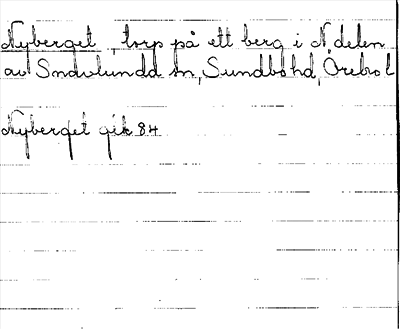 Nyberget, torp på ett berg i N delen
av Snavlunda sn, Sundbo hd, Örebro l
Nyberget gek 84